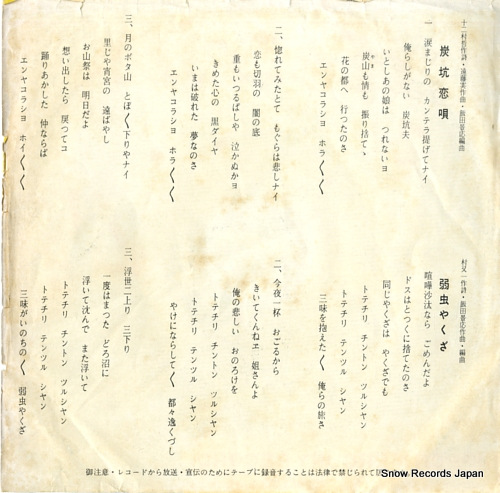 十二村哲作詩・遠藤実作曲・飯田景応編曲
炭坑恋唄
一、涙まじりの カンテラ提げてナイ
俺らしがない 炭坑夫
いとしあの娘は つれないヨ
炭山も情も 振り捨てゝ
花の都へ 行つたのさ
エンヤコラシヨ ホラ〱〱
二、惚れてみたとて もぐらは悲しナイ
恋も切羽の 闇の底
重もいつるばしや 泣かぬかヨ
きめた心の 黒ダイヤ
いまは破れた 夢なのさ
エンヤコラシヨ ホラ〱〱
三、月のボタ山 とぼ〱下りやナイ
里じや宵宮の 遠ばやし
お山祭は 明日だよ
想い出したら 戻つてコ
踊りあかした 仲ならば
エンヤコラシヨ ホイ〱〱
村又一作詩・飯田景応作曲・編曲
弱虫やくざ
喧嘩沙汰なら ごめんだよ
ドスはとつくに捨てたのさ
同じやくざは やくざでも
トテチリ チントン ツルシヤン
トテチリ テンツル シヤン
三味を抱えた〱 俺らの旅さ
二、今夜一杯 おごるから
きいてくんねヱ 姐さんよ
俺の悲しい おのろけを
トテチリ チントン ツルシヤン
トテチリ テンツル シヤン
やけにならして〱 都々逸くづし
三、浮世二上り 三下り
一度はまつた どろ沼に
浮いて沈んで また浮いて
トテチリ チントン ツルシヤン
トテチリ テンツル シヤン
三味がいのちの〱 弱虫やくざ
御注意・レコードから放送・宣伝のためにテープに録音することは法律で禁じられて居
Snow Records Japan